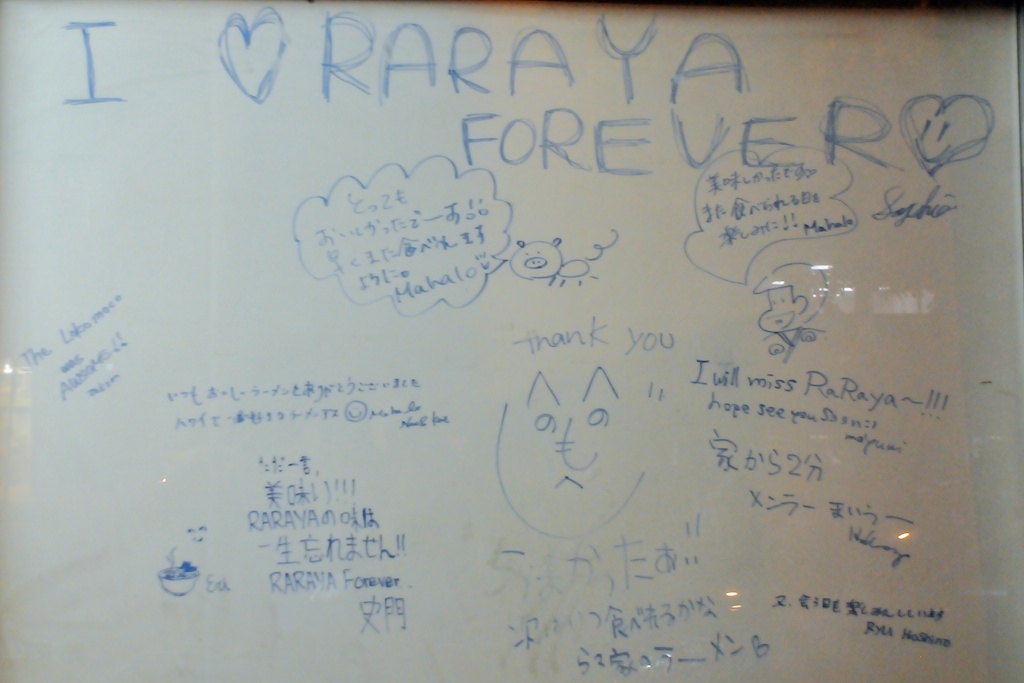 I ♡ RARAYA
FOREVER ♡
とっても
おいしかったでーす!!
早くまた食べれます
ように。
Mahalo
美味しかったですm
また食べられる日を
楽しみに!! Mahalo
Sophia
The Loko moco
was
Awesome!!
Thank you
いつもおいしーラーメンをありがとうございました
ハワイで一番好きなラーメンデス ☺ Mahalo
I will miss RaRaya~!!!
hope see you soon:)
mayumi
家から2分
メンラー まいうー
ただ一言、
美味い!!!
RARAYAの味は
一生忘れません!!
RARAYA Forever.
史門
Eri
うまかったぁ!!
次はいつ食べれるかな
らら家のラーメン
又、会う日を楽しみにしています
Ryu Hoshino